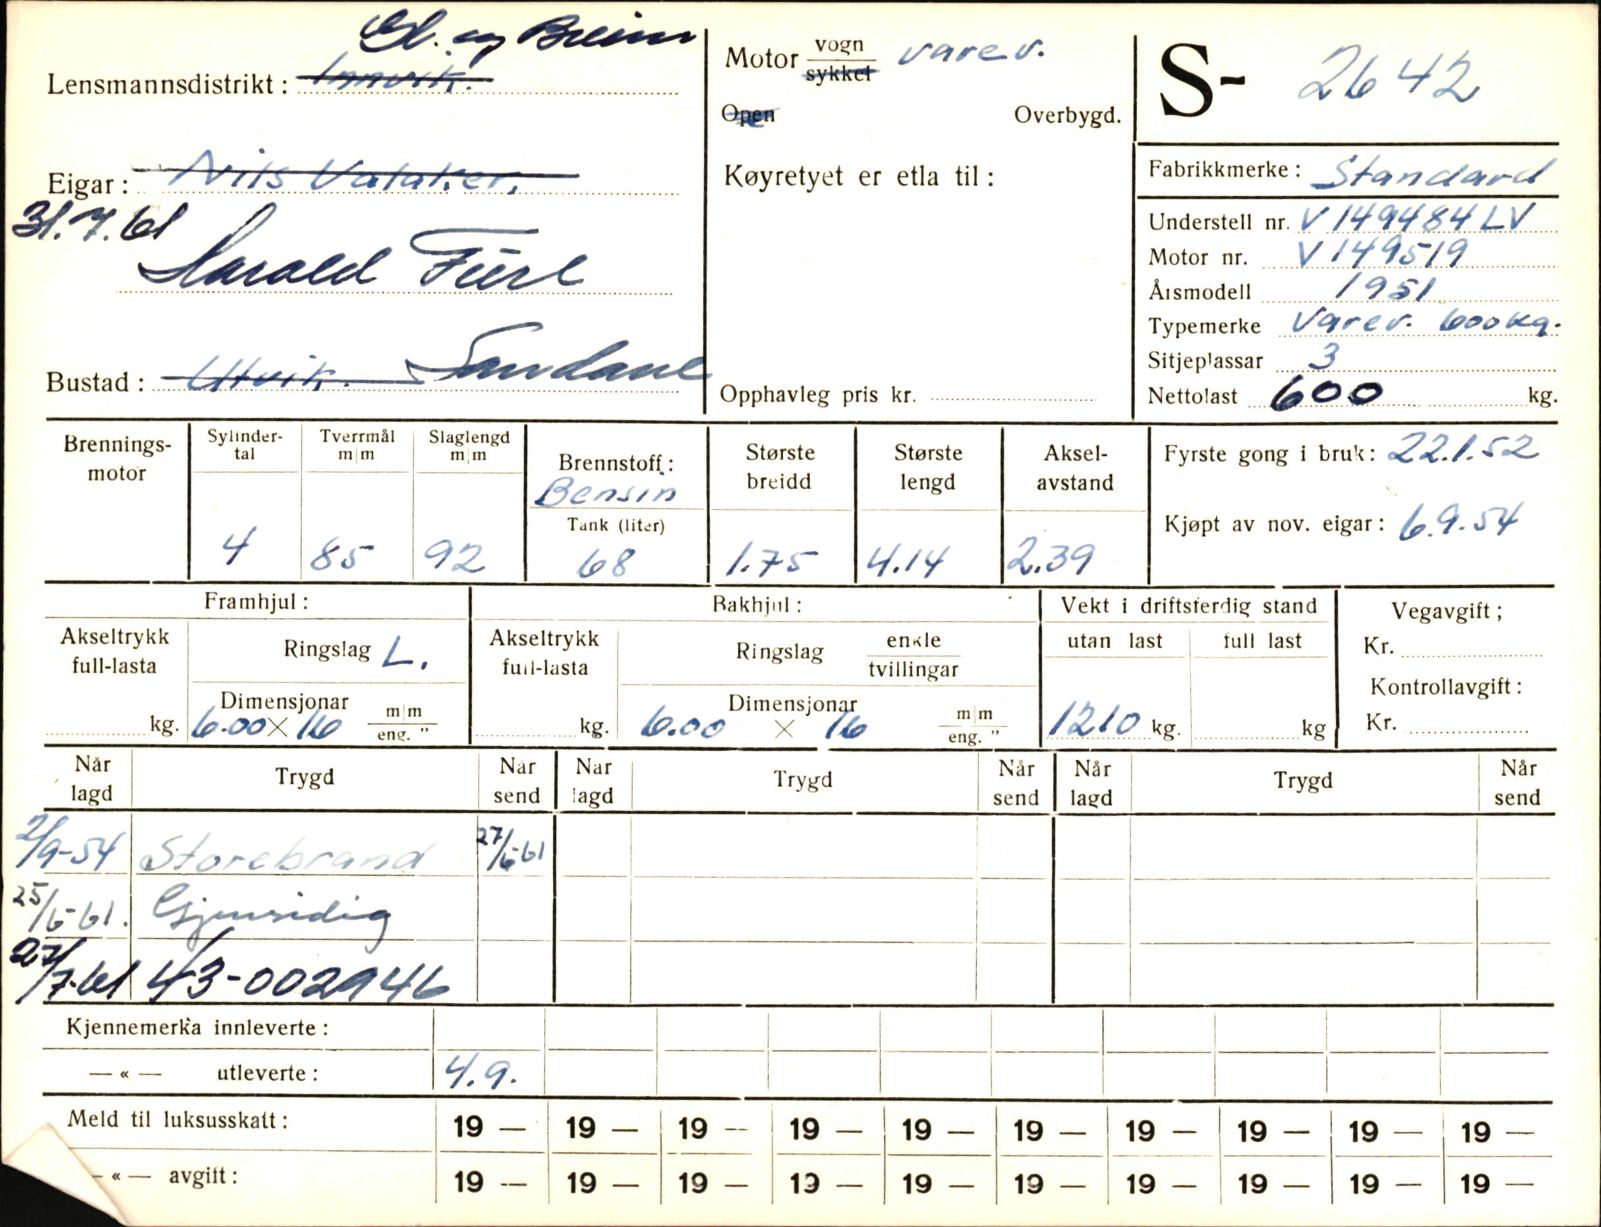 Gl. og Breim
Lensmannsdistrikt: Innvik.
Eigar: Nils Valaker.
31.7.61
Harald
Bustad: Utvik. Sandane
Motor vogn sykkel varev.
Open Overbygd.
Køyretyet er etla til:
Opphavleg pris kr.
S- 2642
Fabrikkmerke: Standard
Understell nr. V149484LV
Motor nr. V149519
Årsmodell 1951
Typemerke Varev. 600 kg.
Sitjeplassar 3
Nettolast 600 kg.
Brennings-motor
Sylinder-tal 4
Tverrmål m/m 85
Slaglengd m/m 92
Brennstoff: Bensin
Tank (liter) 68
Største breidd 1.75
Største lengd 4.14
Aksel-avstand 2.39
Fyrste gong i bruk: 22.1.52
Kjøpt av nov. eigar: 6.9.54
Framhjul:
Akseltrykk full-lasta kg.
Ringslag L.
Dimensjonar 6.00 × 16 m/m eng. "
Bakhjul:
Akseltrykk full-lasta kg.
Ringslag enkle tvillingar
Dimensjonar 6.00 × 16 m/m eng. "
Vekt i driftsferdig stand
utan last 1210 kg.
full last kg
Vegavgift;
Kr.
Kontrollavgift:
Kr.
Når lagd Trygd Når send Når lagd Trygd Når send Når lagd Trygd Når send
2/9-54 Storebrand 27/6-61
25/6-61. Gjensidig
27/7-61 43-002946
Kjennemerka innleverte:
— « — utleverte: 4.9.
Meld til luksusskatt: 19 — 19 — 19 — 19 — 19 — 19 — 19 — 19 — 19 — 19 —
— « — avgift: 19 — 19 — 19 — 19 — 19 — 19 — 19 — 19 — 19 — 19 —